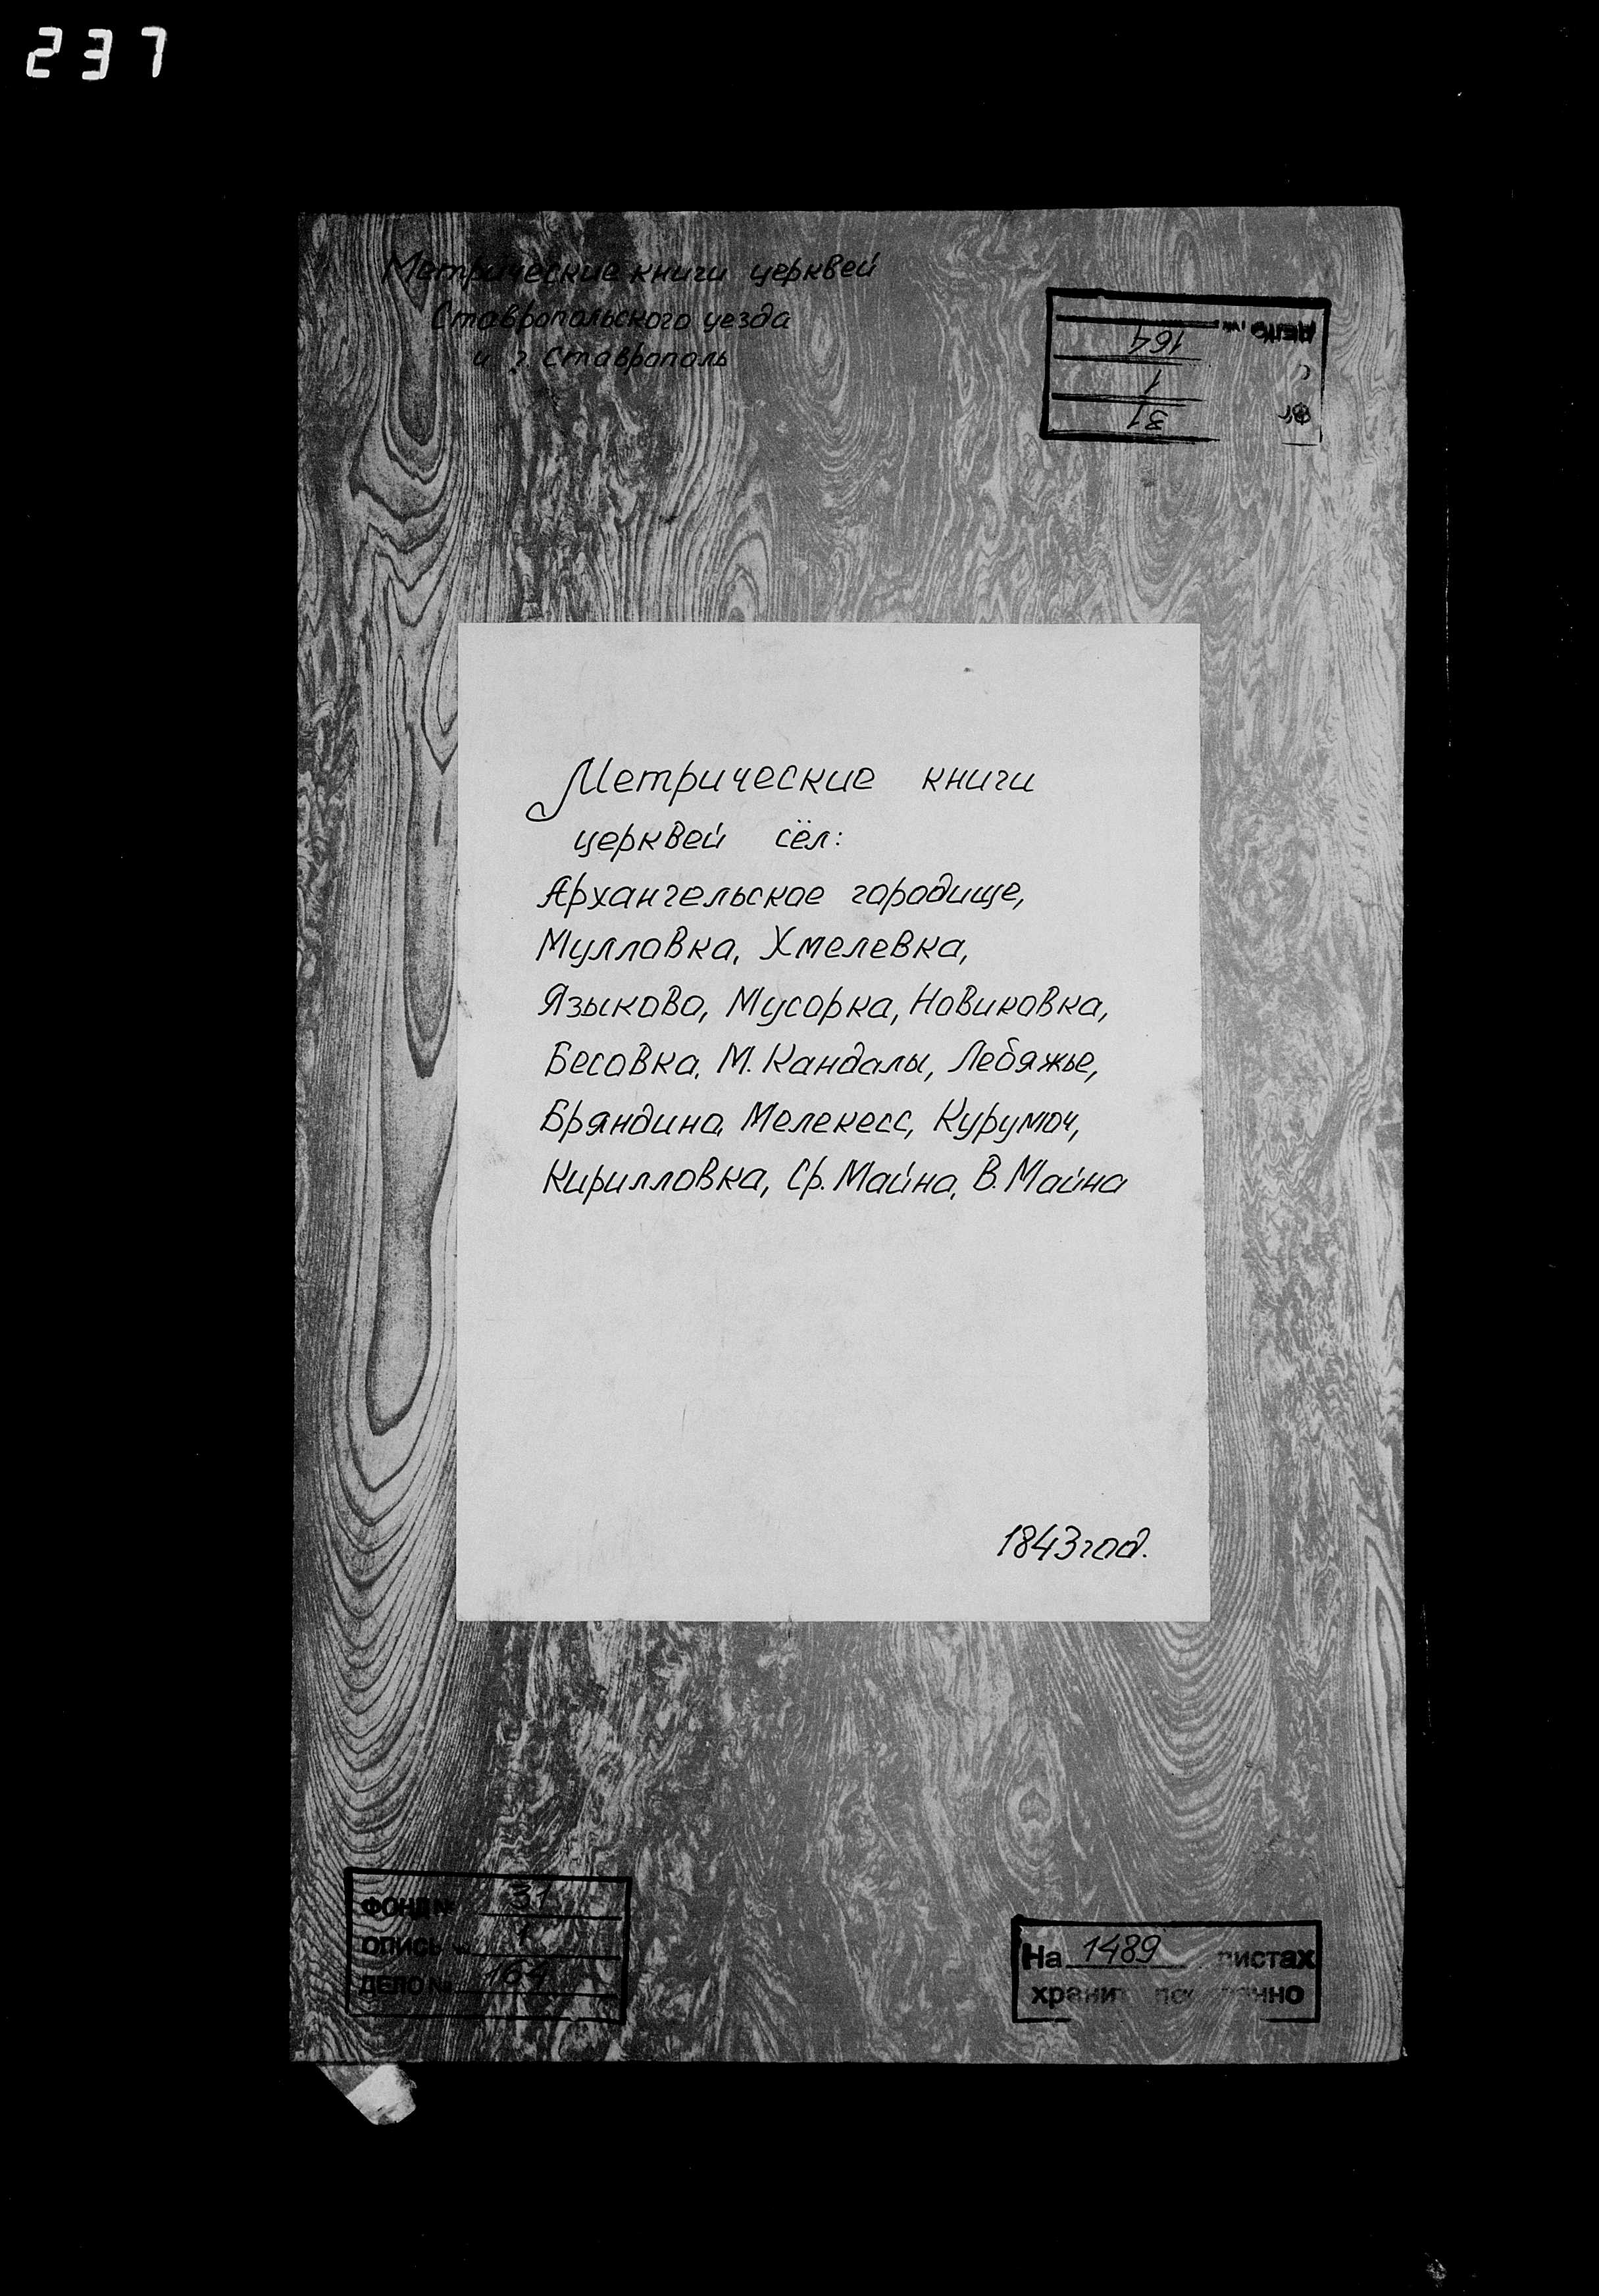 237
Метрические книги церквей
Ставропольского уезда
и г. Ставрополь
Дело № 164
1
31
Метрические книги
церквей сёл:
Архангельское городище,
Мулловка, Хмелевка,
Языково, Мусорка, Новиковка,
Бесовка, М. Кандалы, Лебяжье,
Бряндино, Мелекесс, Курумоч,
Кирилловка, Ср. Майна, В. Майна
1843 год.
ФОНД № 31
ОПИСЬ № 1
ДЕЛО № 164
На 1489 листах
хранить постоянно